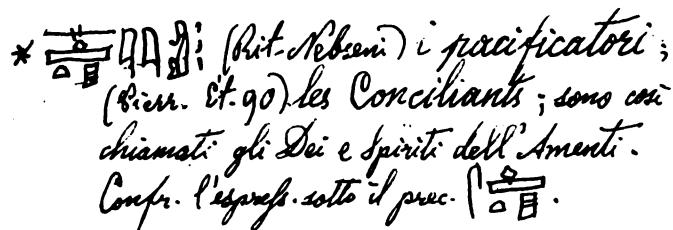 * (Rit. Nebseni) i pacificatori;
(Pierr. Ét. 90) les Conciliants; sono così
chiamati gli Dei e Spiriti dell'Amenti.
Confr. l'espress. sotto il prec.